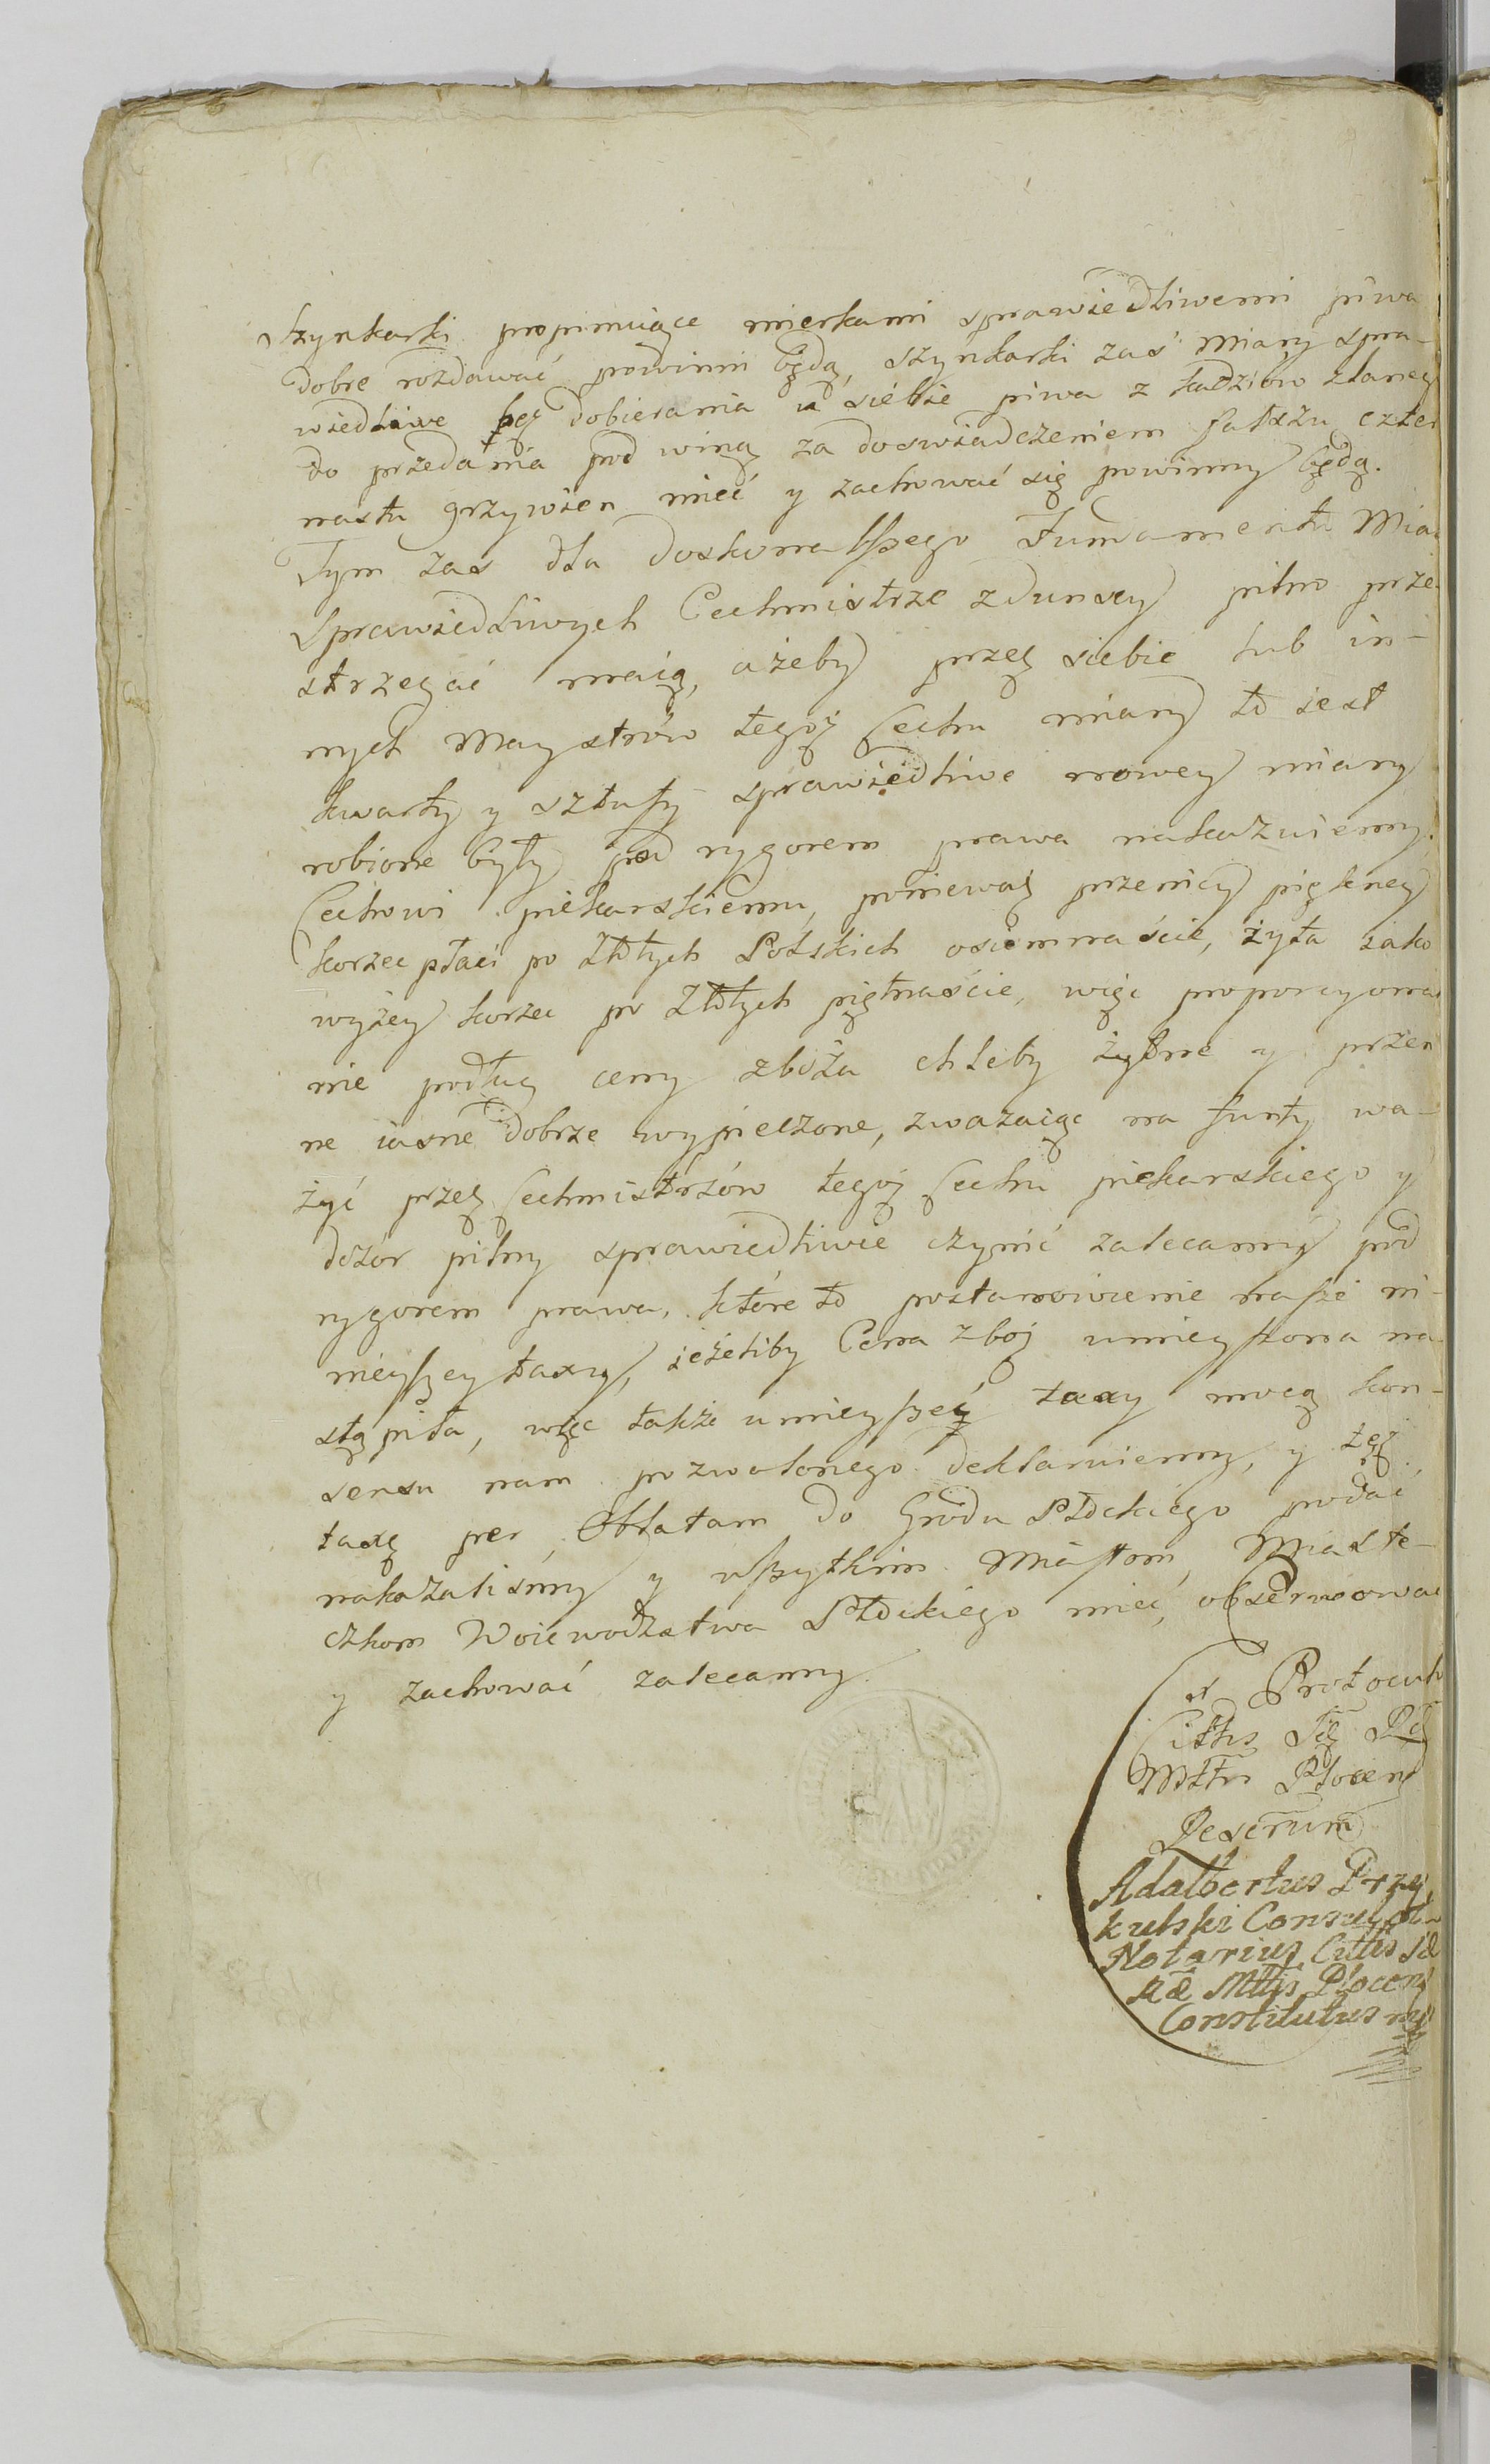 Szynkarki propinuiące mierkami sprawiedliwemi piwa
dobre rozdawać powinni będą, szynkarki zaś miary spra-
wiedliwe bez dobierania u siebie piwa z kadziów zlaneg
do przedania pod winą za doswiadczeniem falszu czter
nastu grzywien mieć y zachować się powinny będą.
Tym zas dla doskonalszego fundamentu Mia
sprawiedliwych Cechmistrze zdunscy pilno prze-
strzegać maią, ażeby przez siebie lub in-
nych Maystrów tegoż Cechu miary to iest
kwarty y sztufy sprawiedliwe nowey miary
robione były pod rygorem prawa nakazuiemy.
Cechowi piekarskiemu, poniewaz przenicy piękney
korzec płaci po Złłtych Polskich osiemnaście, żyta iako
wyżey korzec po Złłtych piętnaście, więc proporcyona
nie podług ceny zboża chleby żytne y przen
ne iasne dobrze wypieczone, zważaiąc na funty wa-
żyć przez Cechmistrzów tegoż Cechu piekarskiego y
dozór pilny sprawiedliwie czynić zalecamy pod
rygorem prawa, które to postanowienie nasze ni-
nieyszey taxy, ieżeliby Cena zboż umnieyszona na
stąpiła, więc także umnieyszey taxy mocą kon-
sensu nam pozwolonego deklaruiemy, y tęż
taxę per Oblatam do Grodu Płłckiego podać
nakazaliśmy y wszytkim Miastom, Miaste-
czkom Woiewodztwa Płłckiego mieć, obserwować
y zachować zalecamy.
Ex Protocul
Mttis Plocen
Descrum
Adalbertus Przy
kulski Consul
Notarius Cittis
Mttis Plocen
Constitutus